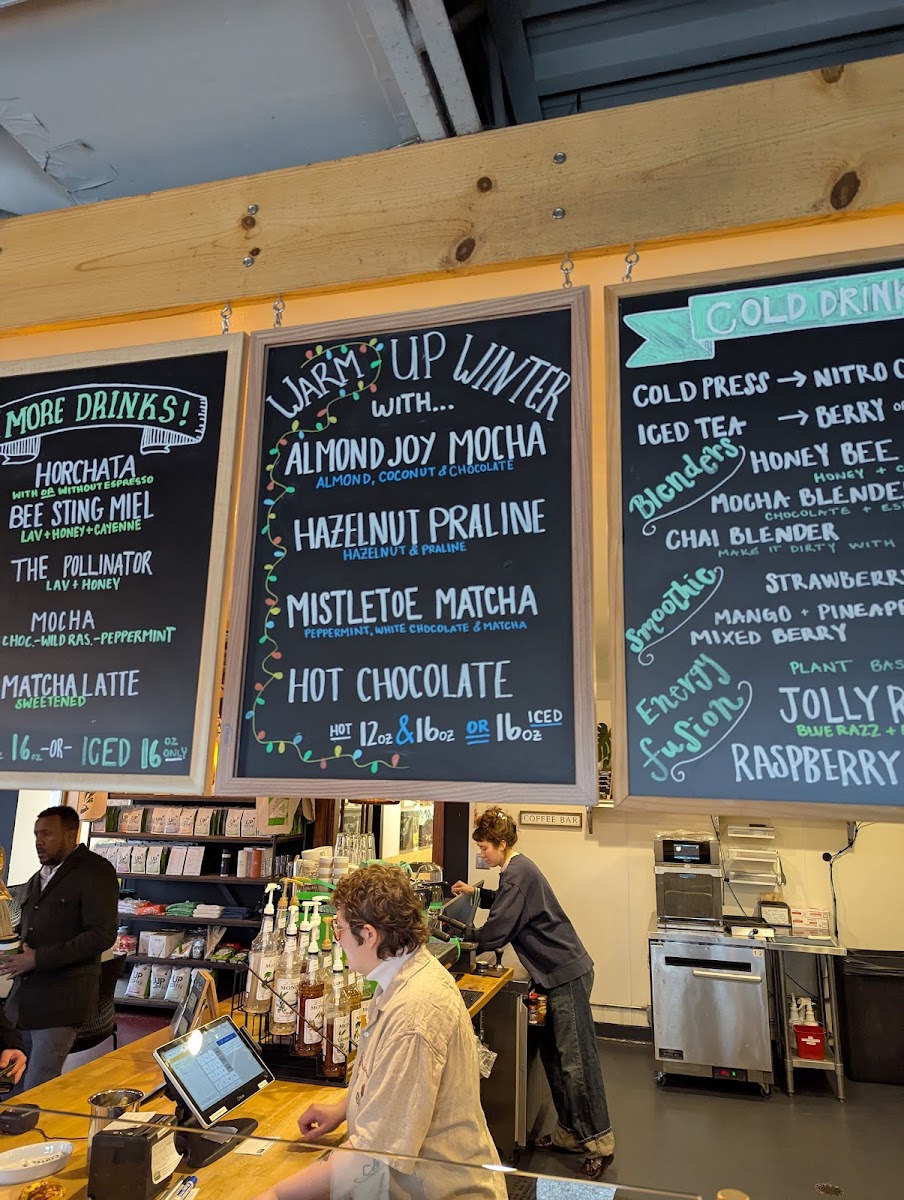 MORE DRINKS!
HORCHATA
WITH OR WITHOUT ESPRESSO
BEE STING MIEL
LAV + HONEY + CAYENNE
THE POLLINATOR
LAV + HONEY
MOCHA
CHOC.-WILD RAS.-PEPPERMINT
MATCHA LATTE
SWEETENED
16oz -OR- ICED 16oz ONLY
WARM UP WINTER
WITH...
ALMOND JOY MOCHA
ALMOND, COCONUT & CHOCOLATE
HAZELNUT PRALINE
HAZELNUT & PRALINE
MISTLETOE MATCHA
PEPPERMINT, WHITE CHOCOLATE & MATCHA
HOT CHOCOLATE
HOT 12oz & 16oz OR 16oz ICED
COLD DRINK
COLD PRESS → NITRO C
ICED TEA → BERRY OR
Blenders
HONEY BEE
HONEY + C
MOCHA BLENDE
CHOCOLATE + ES
CHAI BLENDER
MAKE IT DIRTY WITH
Smoothie
STRAWBERRY
MANGO + PINEAPP
MIXED BERRY
Energy fusion
PLANT BAS
JOLLY R
BLUE RAZZ +
RASPBERRY
COFFEE BAR